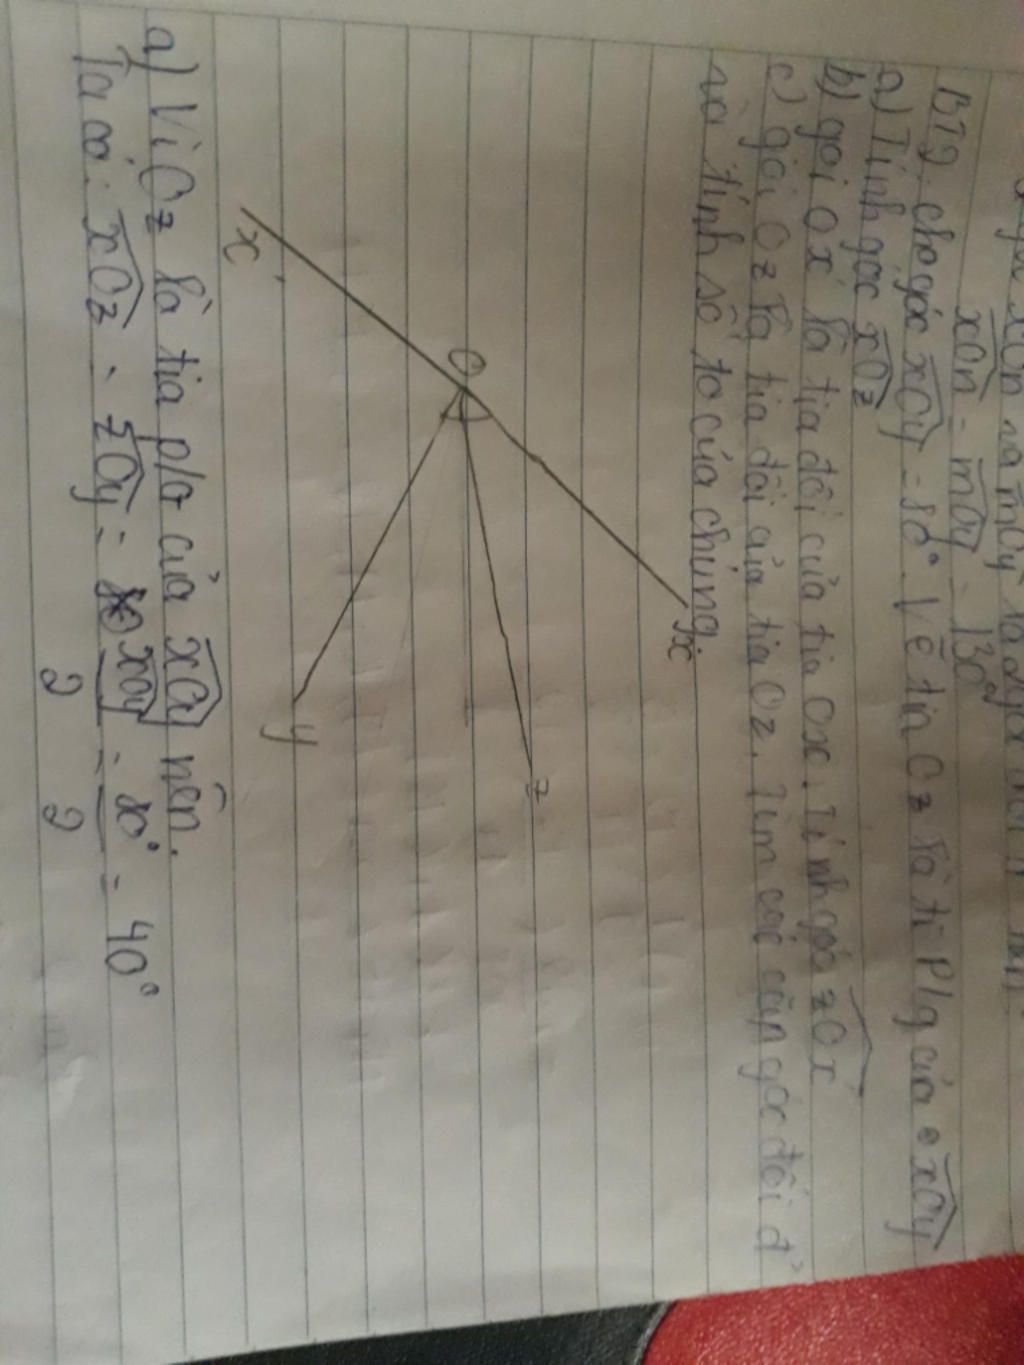 xOn = mOy = 130°
BT9. cho góc xOy = 80°. Vẽ tia Oz là ti P/g của xOy
a) Tính góc xOz
b) gọi Ox' là tia đối của tia Ox. Tính góc zOx'
c) gọi Oz là tia đối của tia Oz. Tìm các cặp góc đối đ
và tính số to của chúng.
x
O
z
x'
y
a) Vì Oz là tia p/g của xOy nên.
Ta có: xOz = zOy = xOy/2 = 80°/2 = 40°